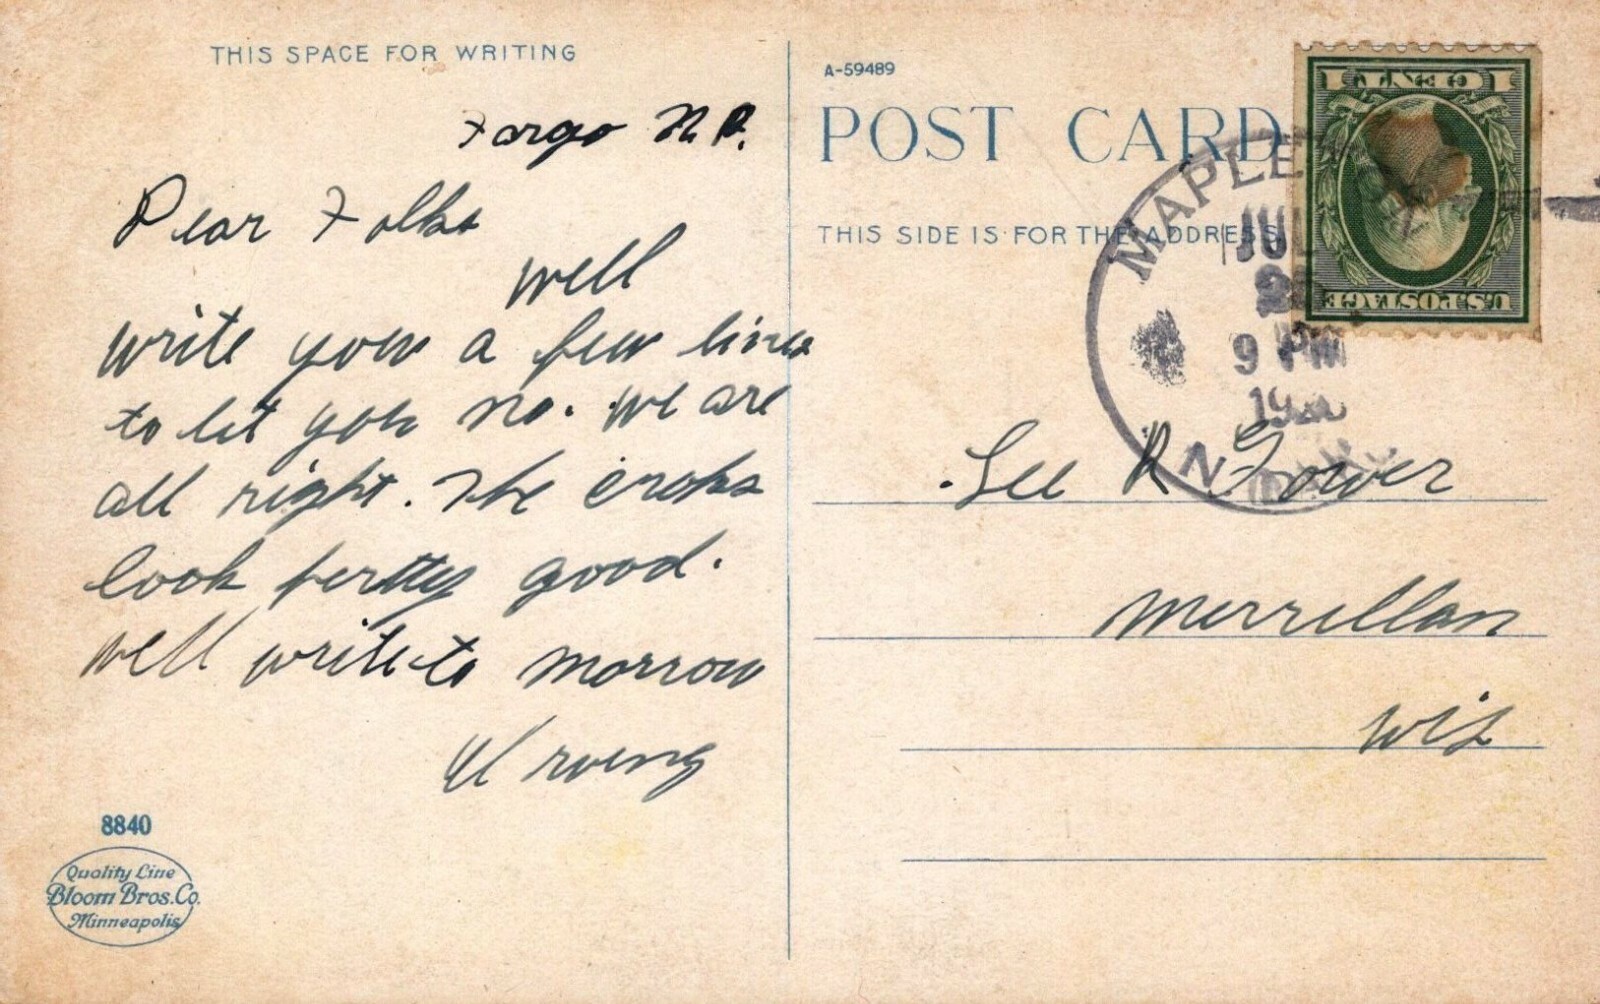 THIS SPACE FOR WRITING
Fargo N. D.
Dear Folks
well
write you a few lines
to let you no. we are
all right. The crops
look pertty good.
well write to morrow
Irving
8840
Quality Line
Bloom Bros. Co.
Minneapolis
A-59489
POST CARD
THIS SIDE IS FOR THE ADDRESS
MAPLE
JUL
9 PM
N.
1 CENT 1
U.S. POSTAGE
Lee R Gower
Merrillan
Wis